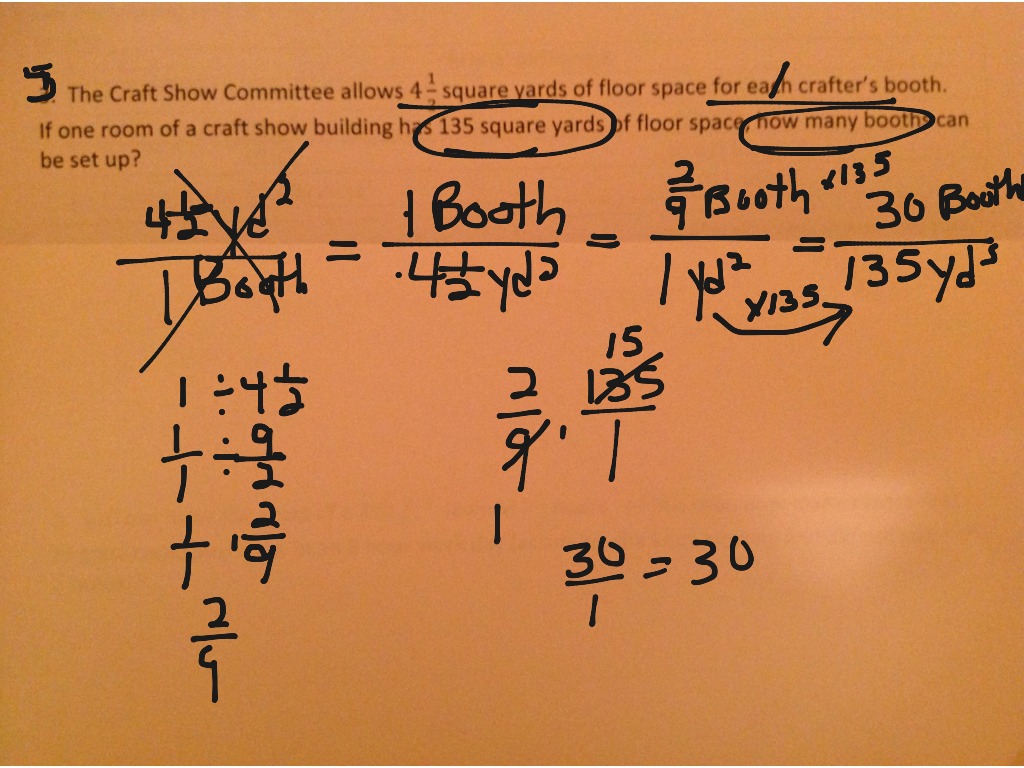 5. The Craft Show Committee allows 4 1/2 square yards of floor space for each crafter's booth.
If one room of a craft show building has 135 square yards of floor space, how many booths can
be set up?
4 1/2 yd² / 1 Booth = 1 Booth / 4 1/2 yd² = 2/9 Booth / 1 yd² = 30 Booth / 135 yd³
x135
x135
1 ÷ 4 1/2
1/1 ÷ 9/2
1/1 · 2/9
2/9
15
2/9 · 135/1
1
30/1 = 30